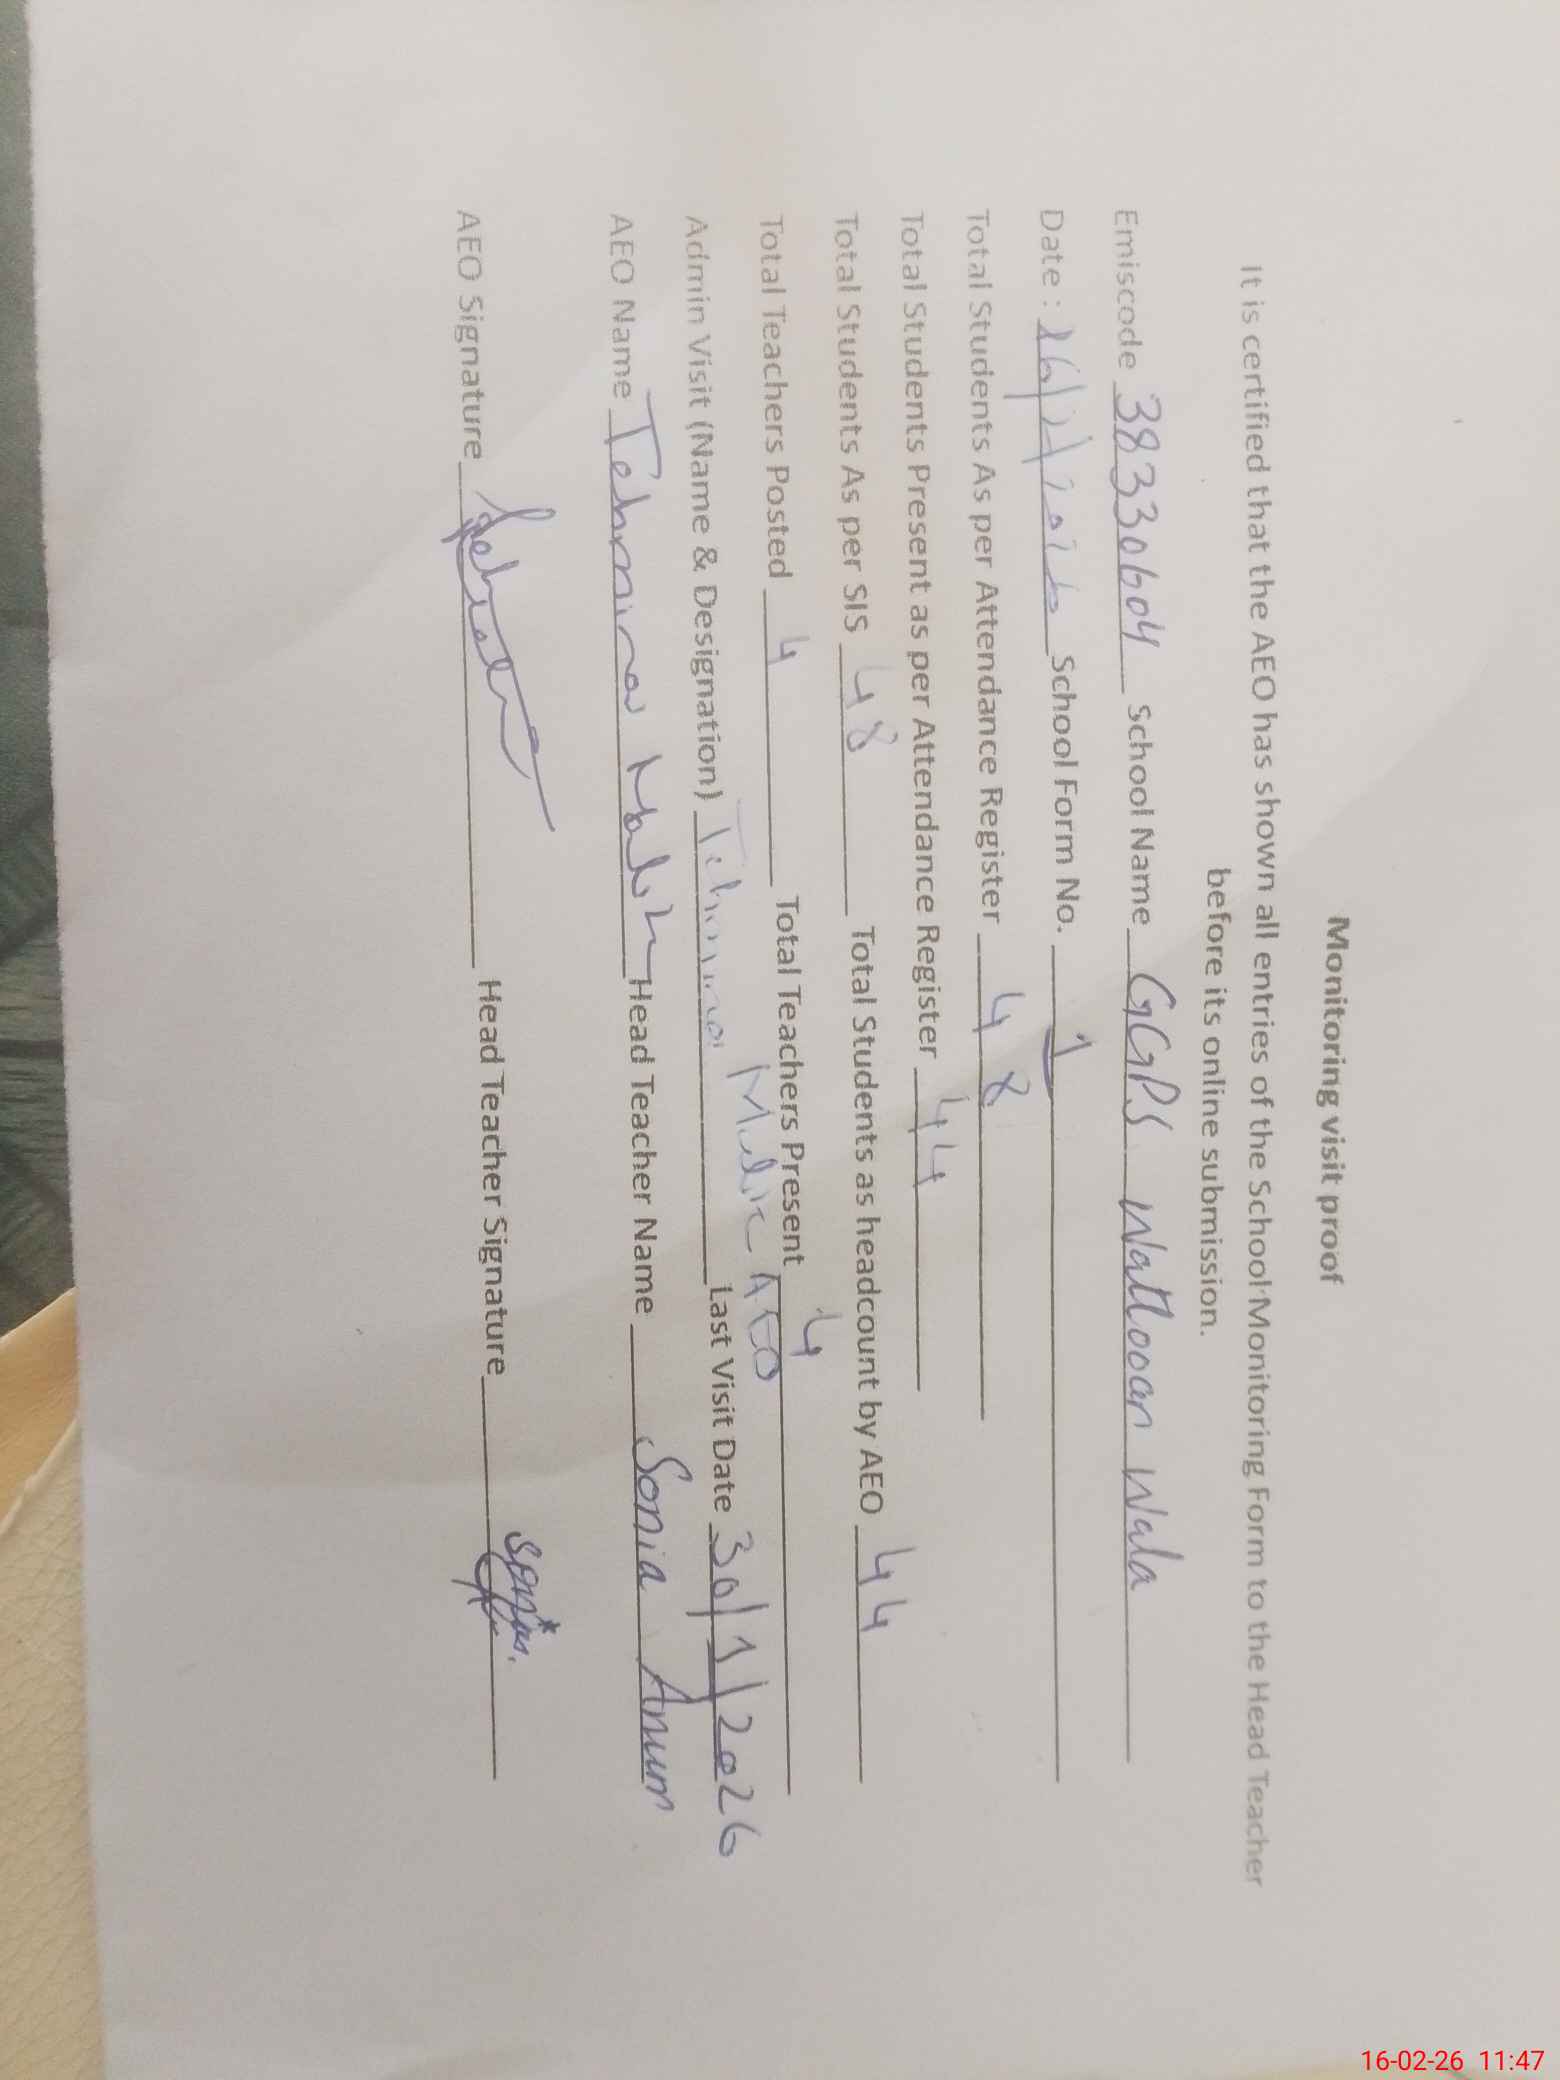 Monitoring visit proof
It is certified that the AEO has shown all entries of the School Monitoring Form to the Head Teacher
before its online submission.
Emiscode 38330604 School Name GGPS Wattooan Wala
Date : 16/2/2026 School Form No. 1
Total Students As per Attendance Register 48
Total Students Present as per Attendance Register 44
Total Students As per SIS 48 Total Students as headcount by AEO 44
Total Teachers Posted 4 Total Teachers Present 4
Admin Visit (Name & Designation) Tehmina Malik AEO Last Visit Date 30/1/2026
AEO Name Tehmina Malik Head Teacher Name Sonia Anum
AEO Signature Head Teacher Signature
16-02-26 11:47